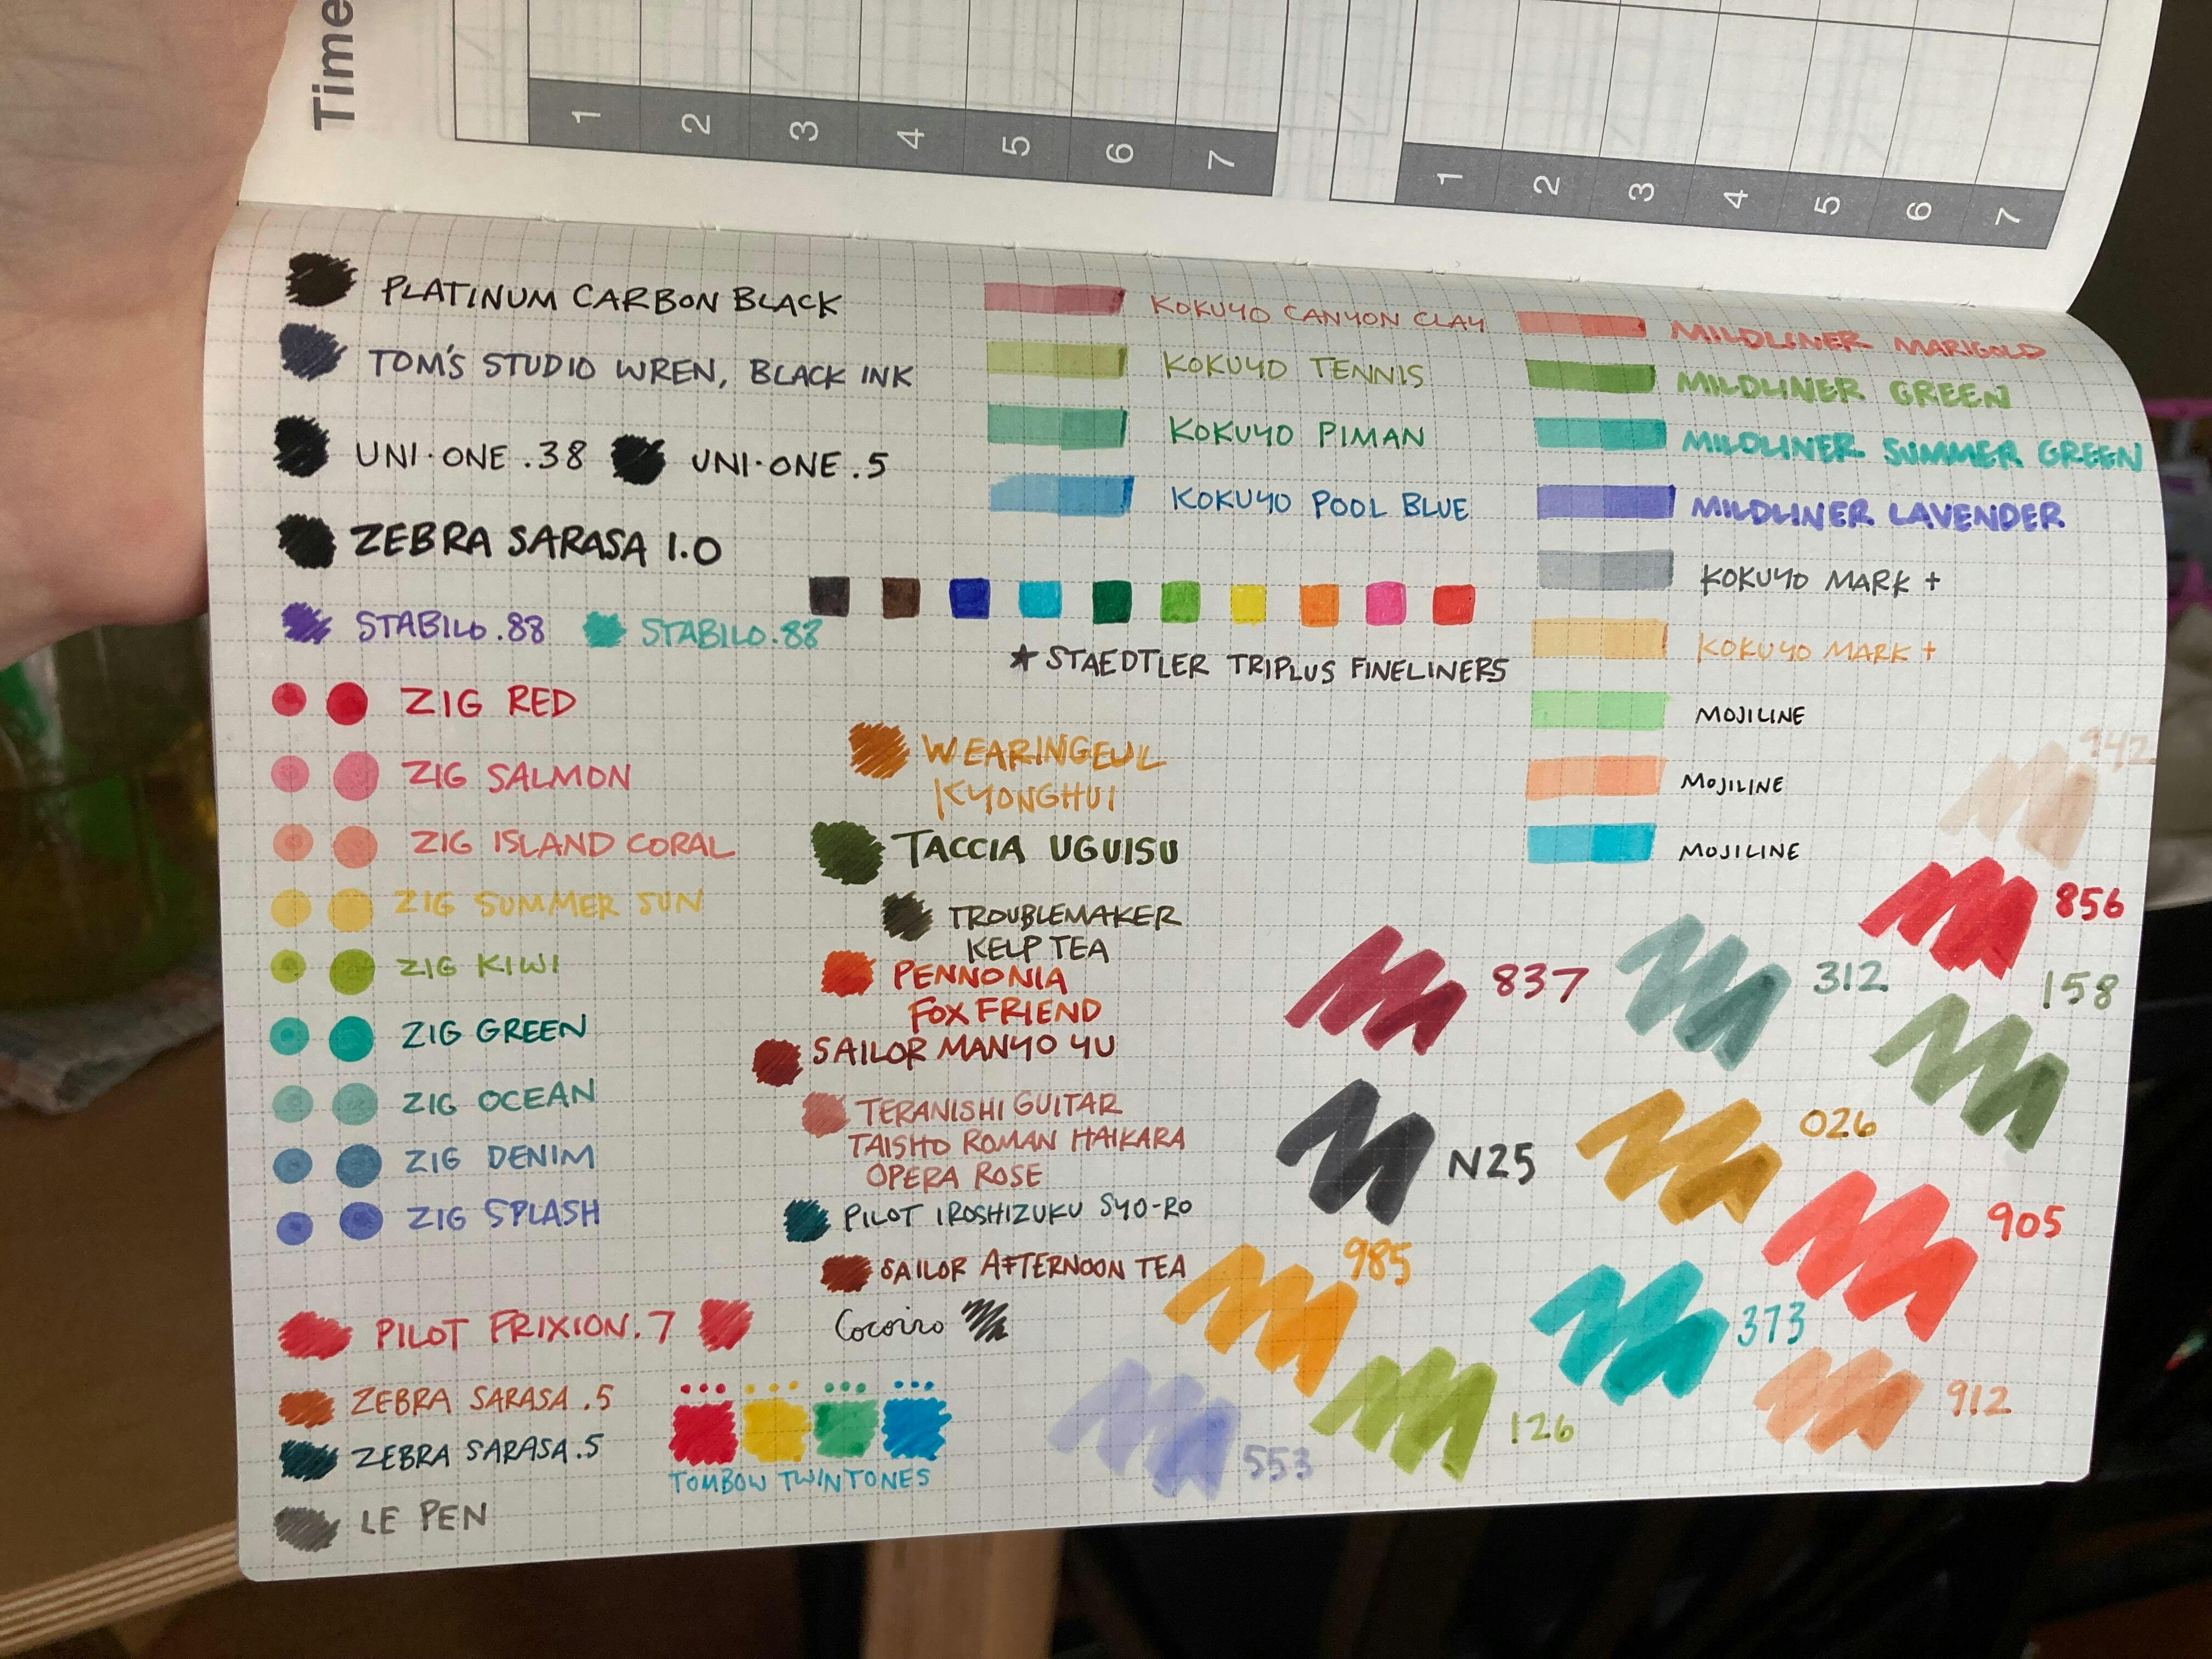 Time
1 2 3 4 5 6 7
1 2 3 4 5 6 7
PLATINUM CARBON BLACK
TOM'S STUDIO WREN, BLACK INK
UNI·ONE .38
UNI·ONE .5
ZEBRA SARASA 1.0
STABILO .88
STABILO .88
ZIG RED
ZIG SALMON
ZIG ISLAND CORAL
ZIG SUMMER SUN
ZIG KIWI
ZIG GREEN
ZIG OCEAN
ZIG DENIM
ZIG SPLASH
PILOT FRIXION .7
ZEBRA SARASA .5
ZEBRA SARASA .5
LE PEN
KOKUYO CANYON CLAY
KOKUYO TENNIS
KOKUYO PIMAN
KOKUYO POOL BLUE
* STAEDTLER TRIPLUS FINELINERS
WEARINGEUL
KYONGHUI
TACCIA UGUISU
TROUBLEMAKER
KELP TEA
PENNONIA
FOX FRIEND
SAILOR MANYO YU
TERANISHI GUITAR
TAISHO ROMAN HAIKARA
OPERA ROSE
PILOT IROSHIZUKU SYO-RO
SAILOR AFTERNOON TEA
Cocoiro
TOMBOW TWINTONES
MILDLINER MARIGOLD
MILDLINER GREEN
MILDLINER SUMMER GREEN
MILDLINER LAVENDER
KOKUYO MARK +
KOKUYO MARK +
MOJILINE
MOJILINE
MOJILINE
942
856
837
312
158
N25
026
905
985
373
912
126
553